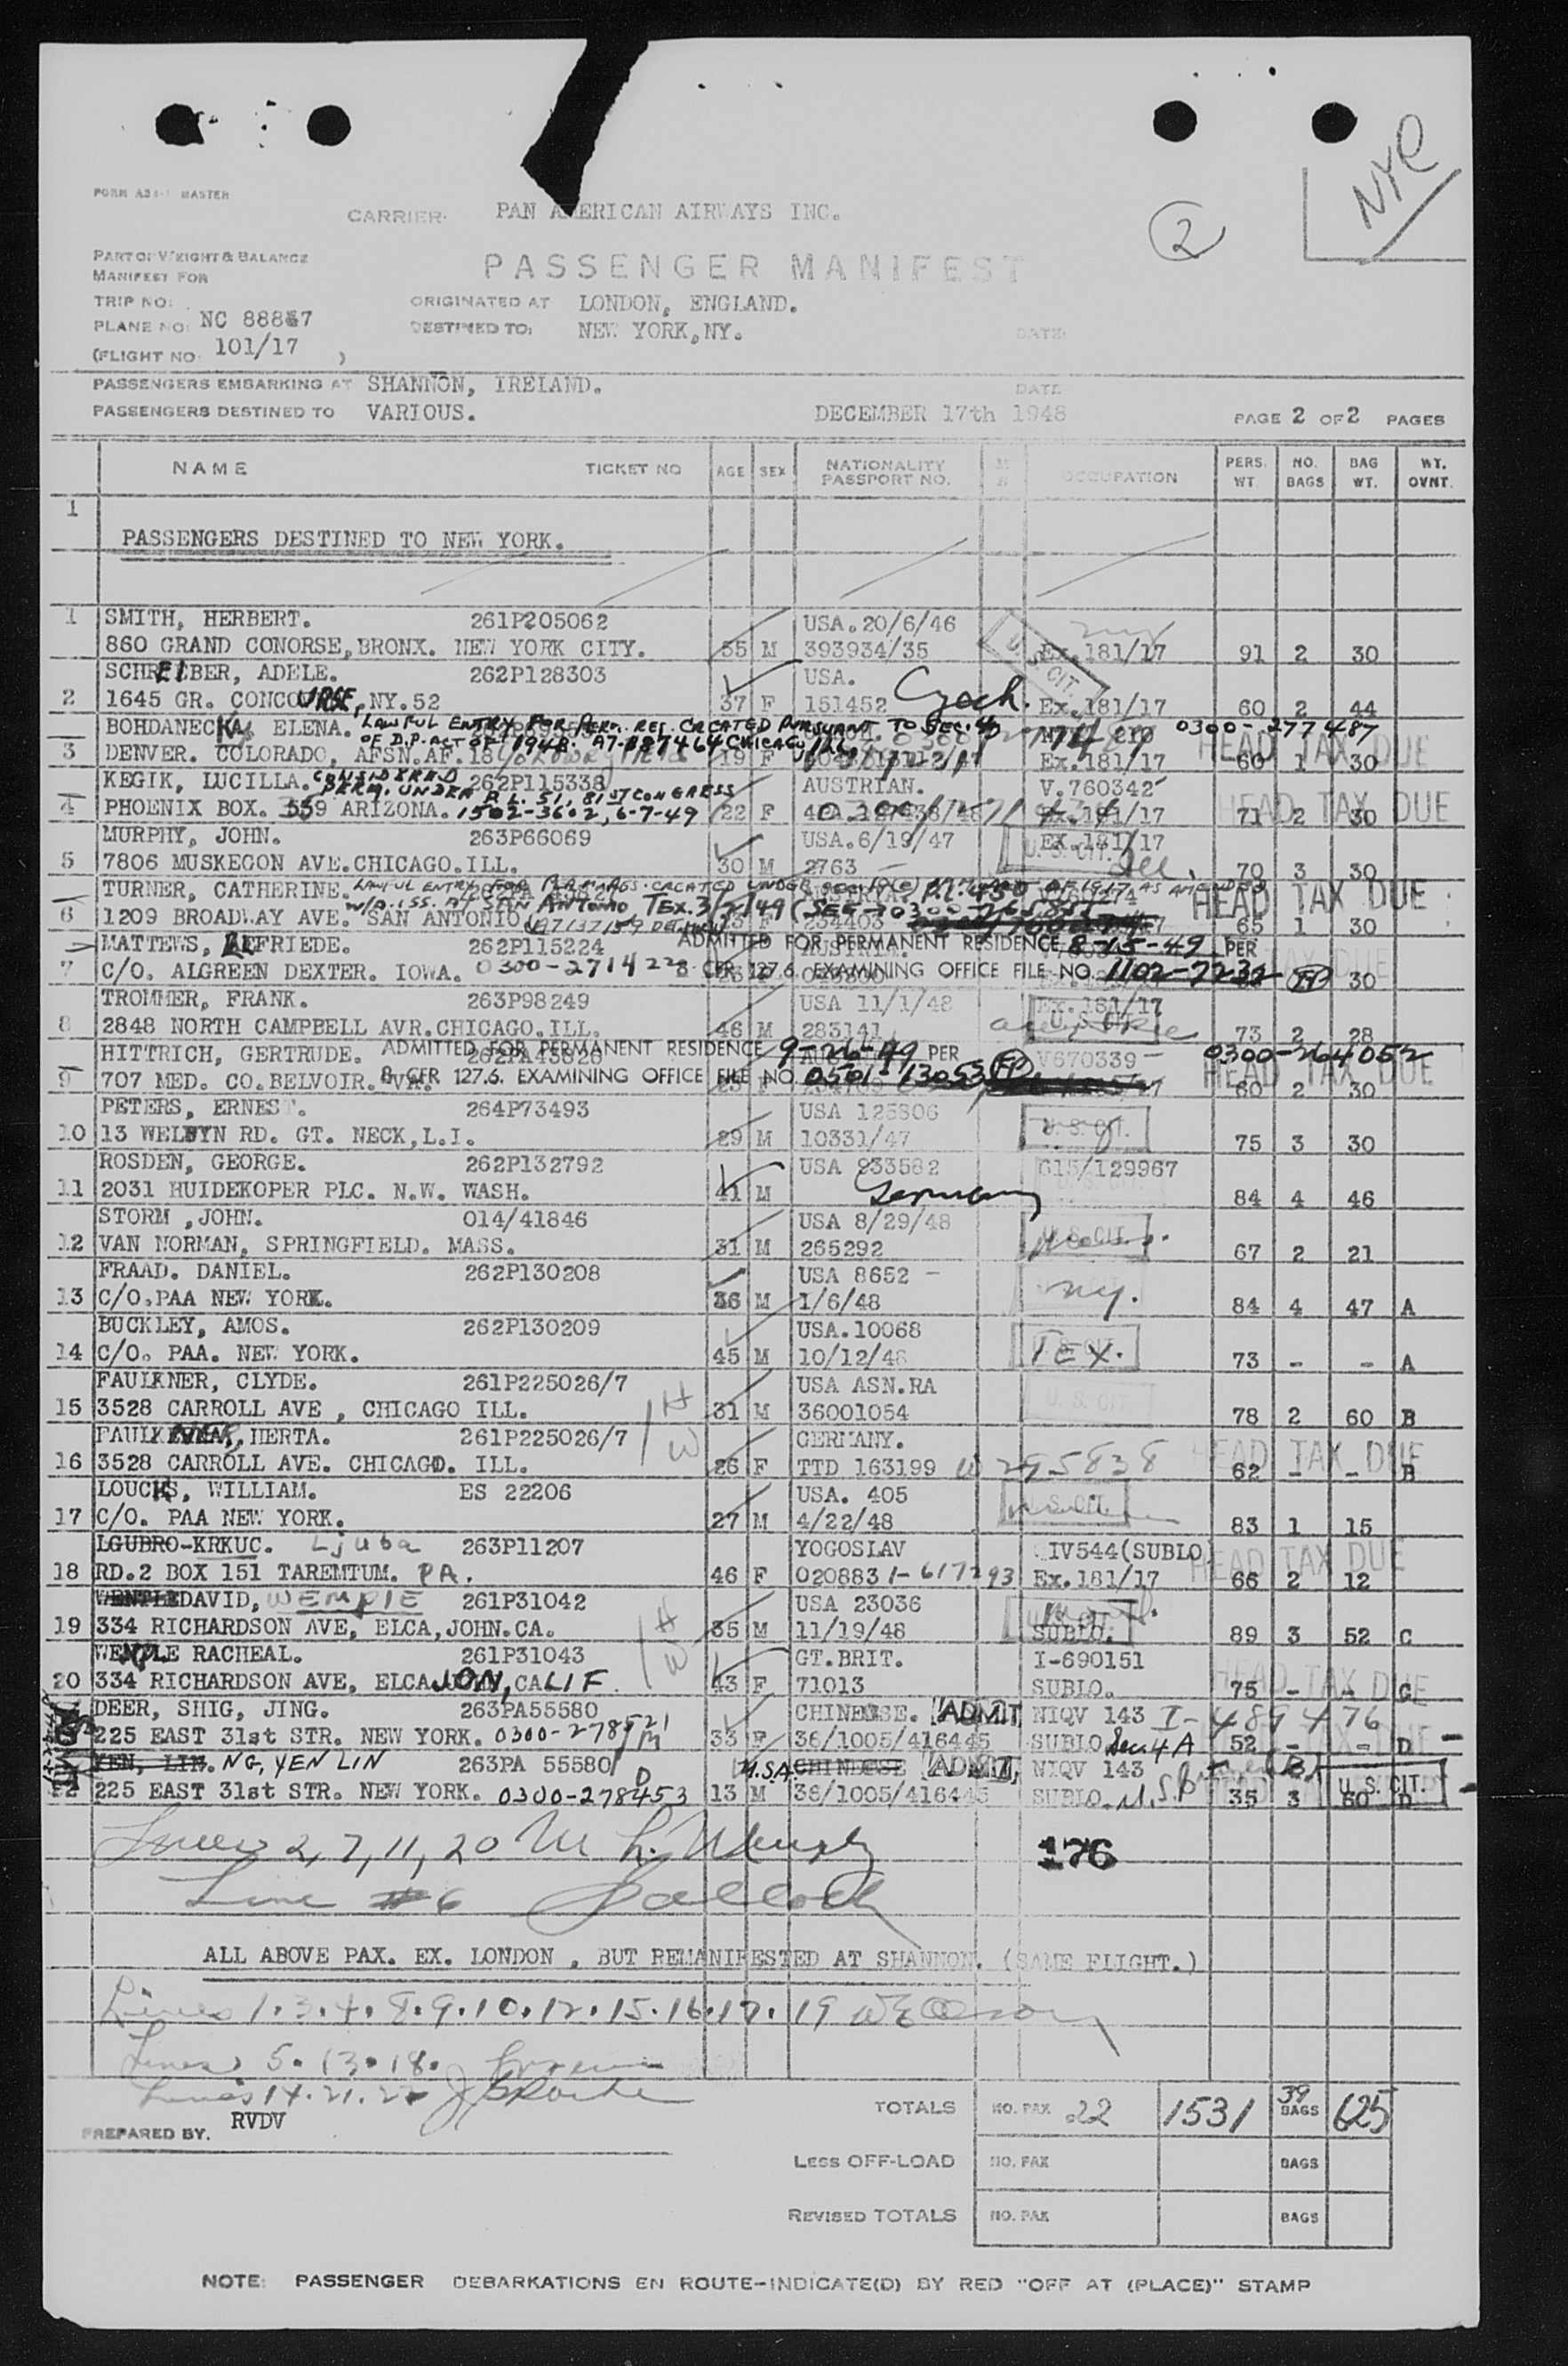 NYC
FORM A24-1 MASTER
CARRIER: PAN AMERICAN AIRWAYS INC.
2
PART OF WEIGHT & BALANCE
MANIFEST FOR
PASSENGER MANIFEST
TRIP NO:
ORIGINATED AT LONDON, ENGLAND.
PLANE NO: NC 88857
DESTINED TO: NEW YORK,NY. DATE:
(FLIGHT NO. 101/17 )
PASSENGERS EMBARKING AT SHANNON, IRELAND. DATE
PASSENGERS DESTINED TO VARIOUS. DECEMBER 17th 1948 PAGE 2 OF 2 PAGES
NAME TICKET NO AGE SEX NATIONALITY PASSPORT NO. OCCUPATION PERS. WT. NO. BAGS BAG WT. WT. OVNT.
1
PASSENGERS DESTINED TO NEW YORK.
1 SMITH, HERBERT. 261P205062 USA.20/6/46
860 GRAND CONORSE,BRONX. NEW YORK CITY. 55 M 393934/35 U.S. CIT. Ex.181/17 91 2 30
SCHREIBER, ADELE. 262P128303 USA.
2 1645 GR. CONCOURSE,NY.52 37 F 151452 Czech. Ex.181/17 60 2 44
BOHDANECKA, ELENA. LAWFUL ENTRY FOR PERM. RES. CREATED PURSUANT TO SEC. 4 0300-277487
OF D.P. ACT OF 1948. A7-887464 CHICAGO HEAD TAX DUE
3 DENVER. COLORADO, AFSN.AF.18 19 F Ex.181/17 60 1 30
KEGIK, LUCILLA. CONSIDERED 262P115338 AUSTRIAN. V.760342
PERM. UNDER P.L. 51, 81ST CONGRESS HEAD TAX DUE
4 PHOENIX BOX. 559 ARIZONA. 1502-3602, 6-7-49 22 F Ex.181/17 71 2 30
MURPHY, JOHN. 263P66069 USA.6/19/47 Ex.181/17
5 7806 MUSKEGON AVE.CHICAGO.ILL. 30 M 2763 U.S. CIT. 70 3 30
TURNER, CATHERINE. LAWFUL ENTRY FOR PERM. RES. CREATED UNDER OF 1917 AS AMENDED
W/A ISS. AT SAN ANTONIO TEX. HEAD TAX DUE
6 1209 BROADWAY AVE. SAN ANTONIO F 234403 65 1 30
MATTEWS, ELFRIEDE. 262P115224 ADMITTED FOR PERMANENT RESIDENCE 8-15-49 PER
7 C/O. ALGREEN DEXTER. IOWA. 0300-271422 8 CFR 127.6. EXAMINING OFFICE FILE NO. 1102-7232 30
TROMMER, FRANK. 263P98249 USA 11/1/48 Ex.181/17
8 2848 NORTH CAMPBELL AVR.CHICAGO.ILL. 46 M 283141 U.S. CIT. 73 2 28
HITTRICH, GERTRUDE. ADMITTED FOR PERMANENT RESIDENCE 9-26-49 PER V670339 0300-264052
9 707 MED. CO.BELVOIR. VA. 8 CFR 127.6. EXAMINING OFFICE FILE NO. 0501-13053 HEAD TAX DUE 60 2 30
PETERS, ERNEST. 264P73493 USA 125306
10 13 WELWYN RD. GT. NECK,L.I. 29 M 10331/47 U.S. CIT. 75 3 30
ROSDEN, GEORGE. 262P132792 USA 833582 615/129967
11 2031 HUIDEKOPER PLC. N.W. WASH. 41 M Germany 84 4 46
STORM ,JOHN. 014/41846 USA 8/29/48
12 VAN NORMAN, SPRINGFIELD. MASS. 31 M 265292 U.S. CIT. 67 2 21
FRAAD. DANIEL. 262P130208 USA 8652 -
13 C/O.PAA NEW YORK. 36 M 1/6/48 ny. 84 4 47 A
BUCKLEY, AMOS. 262P130209 USA.10068
14 C/O. PAA. NEW YORK. 45 M 10/12/48 TEX. 73 - - A
FAULKNER, CLYDE. 261P225026/7 USA ASN.RA
15 3528 CARROLL AVE , CHICAGO ILL. H 31 M 36001054 U.S. CIT. 78 2 60 B
FAULKNER, HERTA. 261P225026/7 W GERMANY. HEAD TAX DUE
16 3528 CARROLL AVE. CHICAGO. ILL. 26 F TTD 163199 W 295838 62 - - B
LOUCKS, WILLIAM. ES 22206 USA. 405
17 C/O. PAA NEW YORK. 27 M 4/22/48 U.S. CIT. 83 1 15
LGUBRO-KRKUC. Ljuba 263P11207 YOGOSLAV IV544(SUBLO) HEAD TAX DUE
18 RD.2 BOX 151 TAREMTUM. PA. 46 F 020883 1-617293 Ex.181/17 66 2 12
DAVID, WEMPLE 261P31042 USA 23036
19 334 RICHARDSON AVE, ELCA,JOHN.CA. H 35 M 11/19/48 SUBLO. 89 3 52 C
WEMPLE RACHEAL. 261P31043 W GT.BRIT. I-690151
20 334 RICHARDSON AVE, ELCAJON, CALIF. 43 F 71013 SUBLO. HEAD TAX DUE 75 - - C
DEER, SHIG, JING. 263PA55580 CHINESE. ADMIT NIQV 143 I-489476
225 EAST 31st STR. NEW YORK. 0300-278521 33 F 36/1005/416445 SUBLO Sec 4 A 52 - - D
YEN, LIN. NG, YEN LIN 263PA 55580 CHINESE ADMIT, NIQV 143
22 225 EAST 31st STR. NEW YORK. 0300-278453 13 M 36/1005/416445 SUBLO. 35 3 60 D U.S. CIT.
Lines 2, 7, 11, 20
176
Line #6
ALL ABOVE PAX. EX. LONDON , BUT REMANIFESTED AT SHANNON. (SAME FLIGHT.)
Lines 1.3.4.8.9.10.12.15.16.17.19
Lines 5.13.18.
Lines 14.21.22
PREPARED BY. RVDV
TOTALS NO. PAX 22 1531 39 BAGS 625
LESS OFF-LOAD NO. PAX BAGS
REVISED TOTALS NO. PAX BAGS
NOTE: PASSENGER DEBARKATIONS EN ROUTE-INDICATE(D) BY RED "OFF AT (PLACE)" STAMP